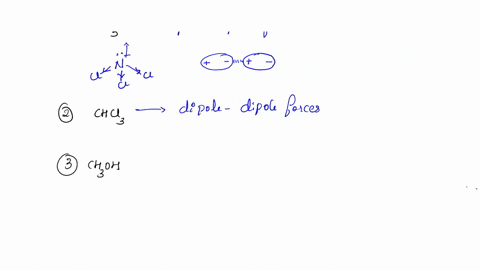 N
Cl Cl
Cl
+ - + -
② CHCl₃ → dipole - dipole forces
③ CH₃OH